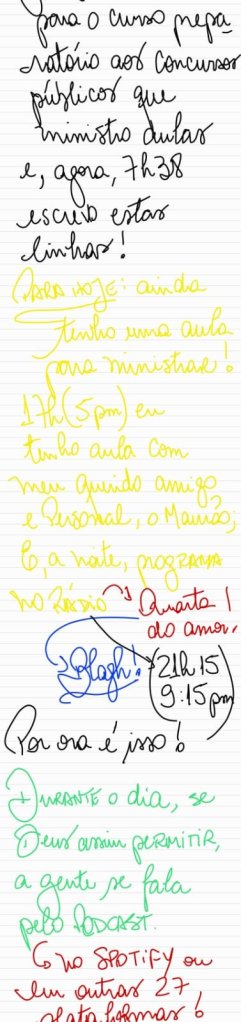 para o curso prepa
ratório aos concursos
públicos que
ministro aulas
e, agora, 7h38
escrevo estas
linhas!
PARA HOJE: ainda
tenho uma aula
para ministrar!
17h (5pm) eu
tenho aula com
meu querido amigo
e Personal, o
E, a noite, programa
no RÁDIO Quarta
do amor.
21h15
9:15pm
Por ora é isso!
DURANTE o dia, se
Deus assim PERMITIR,
a gente se fala
pelo PODCAST.
no SPOTIFY ou
em outras 27
plataformas!